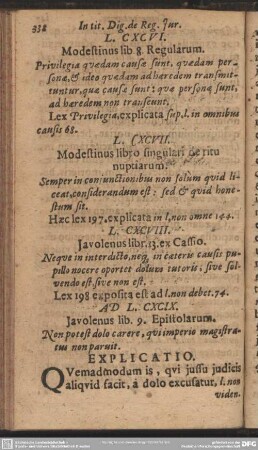 332 In tit. Dig. de Reg. Jur.
L. CXCVI.
Modestinus lib 8. Regularum.
Privilegia quædam causæ sunt, quædam per-
sonæ, & ideo quædam ad hæredem transmit-
tuntur, quæ causæ sunt: quæ personæ sunt,
ad hæredem non transeunt.
Lex Privilegia, explicata sup. l. in omnibus
causis 68.
L. CXCVII.
Modestinus libro singulari de ritu
nuptiarum.
Semper in conjunctionibus non solum quid li-
ceat, considerandum est: sed & quid hone-
stum sit.
Hæc lex 197. explicata in l, non omne 144.
L. CXCVIII.
Javolenus libr. 13. ex Cassio.
Neque in interdicto, neq; in cæteris causis pu-
pillo nocere oportet dolum tutoris: sive sol-
vendo est, sive non est.
Lex 198 exposita est ad l. non debet. 74.
AD L. CXCIX.
Javolenus lib. 9. Epistolarum.
Non potest dolo carere, qui imperio magistra-
tus non paruit.
EXPLICATIO.
QVemadmodum is, qvi jussu judicis
aliqvid facit, à dolo excusatur, l. non
viden.